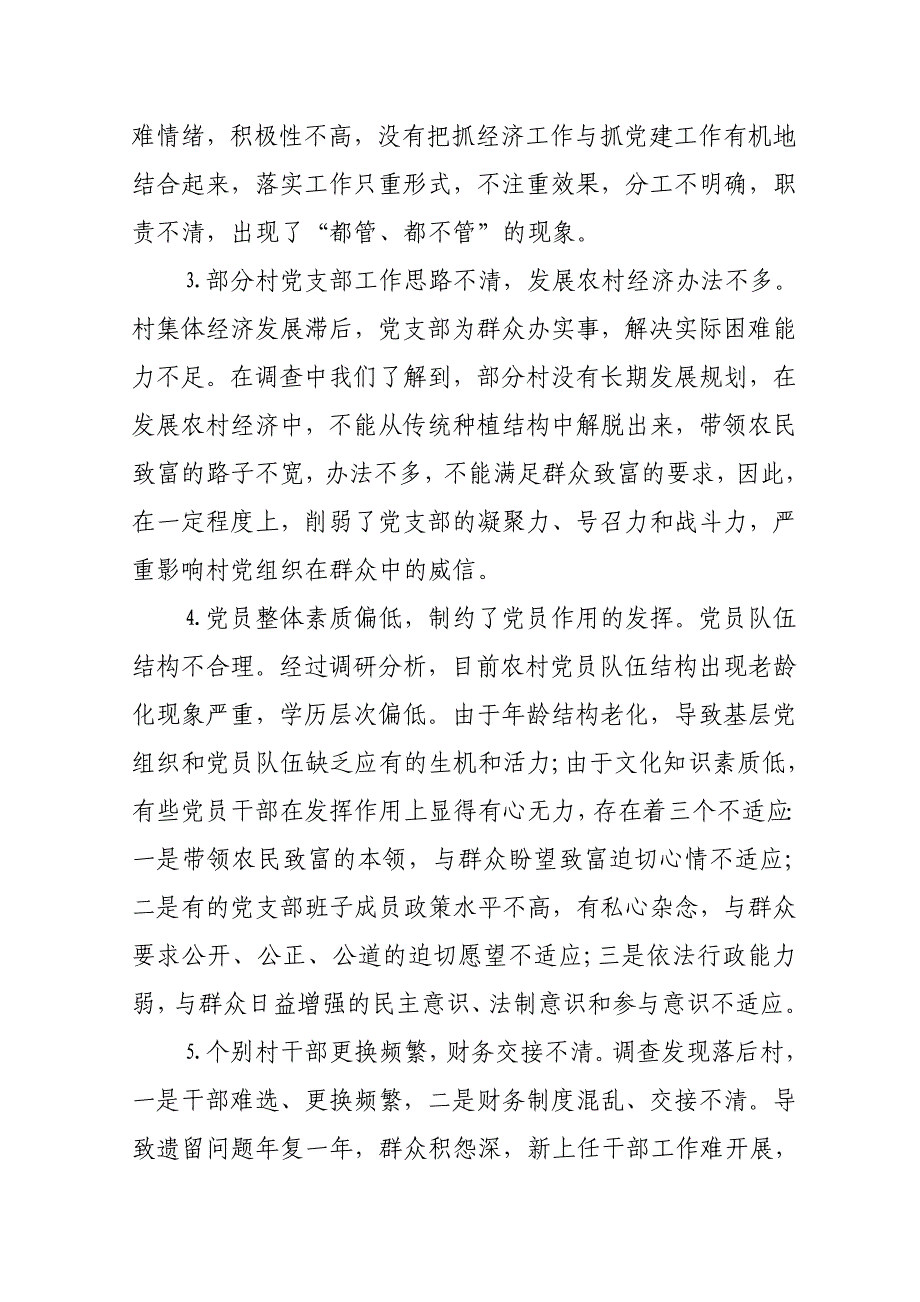 难情绪，积极性不高，没有把抓经济工作与抓党建工作有机地
结合起来，落实工作只重形式，不注重效果，分工不明确，职
责不清，出现了“都管、都不管”的现象。
3.部分村党支部工作思路不清，发展农村经济办法不多。
村集体经济发展滞后，党支部为群众办实事，解决实际困难能
力不足。在调查中我们了解到，部分村没有长期发展规划，在
发展农村经济中，不能从传统种植结构中解脱出来，带领农民
致富的路子不宽，办法不多，不能满足群众致富的要求，因此，
在一定程度上，削弱了党支部的凝聚力、号召力和战斗力，严
重影响村党组织在群众中的威信。
4.党员整体素质偏低，制约了党员作用的发挥。党员队伍
结构不合理。经过调研分析，目前农村党员队伍结构出现老龄
化现象严重，学历层次偏低。由于年龄结构老化，导致基层党
组织和党员队伍缺乏应有的生机和活力；由于文化知识素质低，
有些党员干部在发挥作用上显得有心无力，存在着三个不适应：
一是带领农民致富的本领，与群众盼望致富迫切心情不适应；
二是有的党支部班子成员政策水平不高，有私心杂念，与群众
要求公开、公正、公道的迫切愿望不适应；三是依法行政能力
弱，与群众日益增强的民主意识、法制意识和参与意识不适应。
5.个别村干部更换频繁，财务交接不清。调查发现落后村，
一是干部难选、更换频繁，二是财务制度混乱、交接不清。导
致遗留问题年复一年，群众积怨深，新上任干部工作难开展，